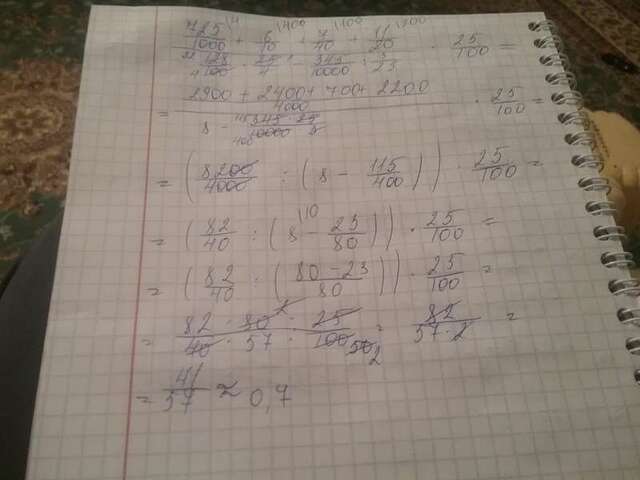 725/1000 + 6/10 + 7/40 + 11/20
128/100 · 25/4 - 345/10000 : 3/23 · 25/100 =
= 2900 + 2400 + 700 + 2200 / 4000
8 - 345 · 25 / 10000 · 25/100 =
= (8200/4000 : (8 - 115/400)) · 25/100 =
= (82/40 : (8 - 23/80)) · 25/100 =
= (82/40 : (80 - 23 / 80)) · 25/100 =
= 82 · 80 · 25 / 40 · 57 · 100 = 82 / 57 · 2 =
= 41/57 ≈ 0,7